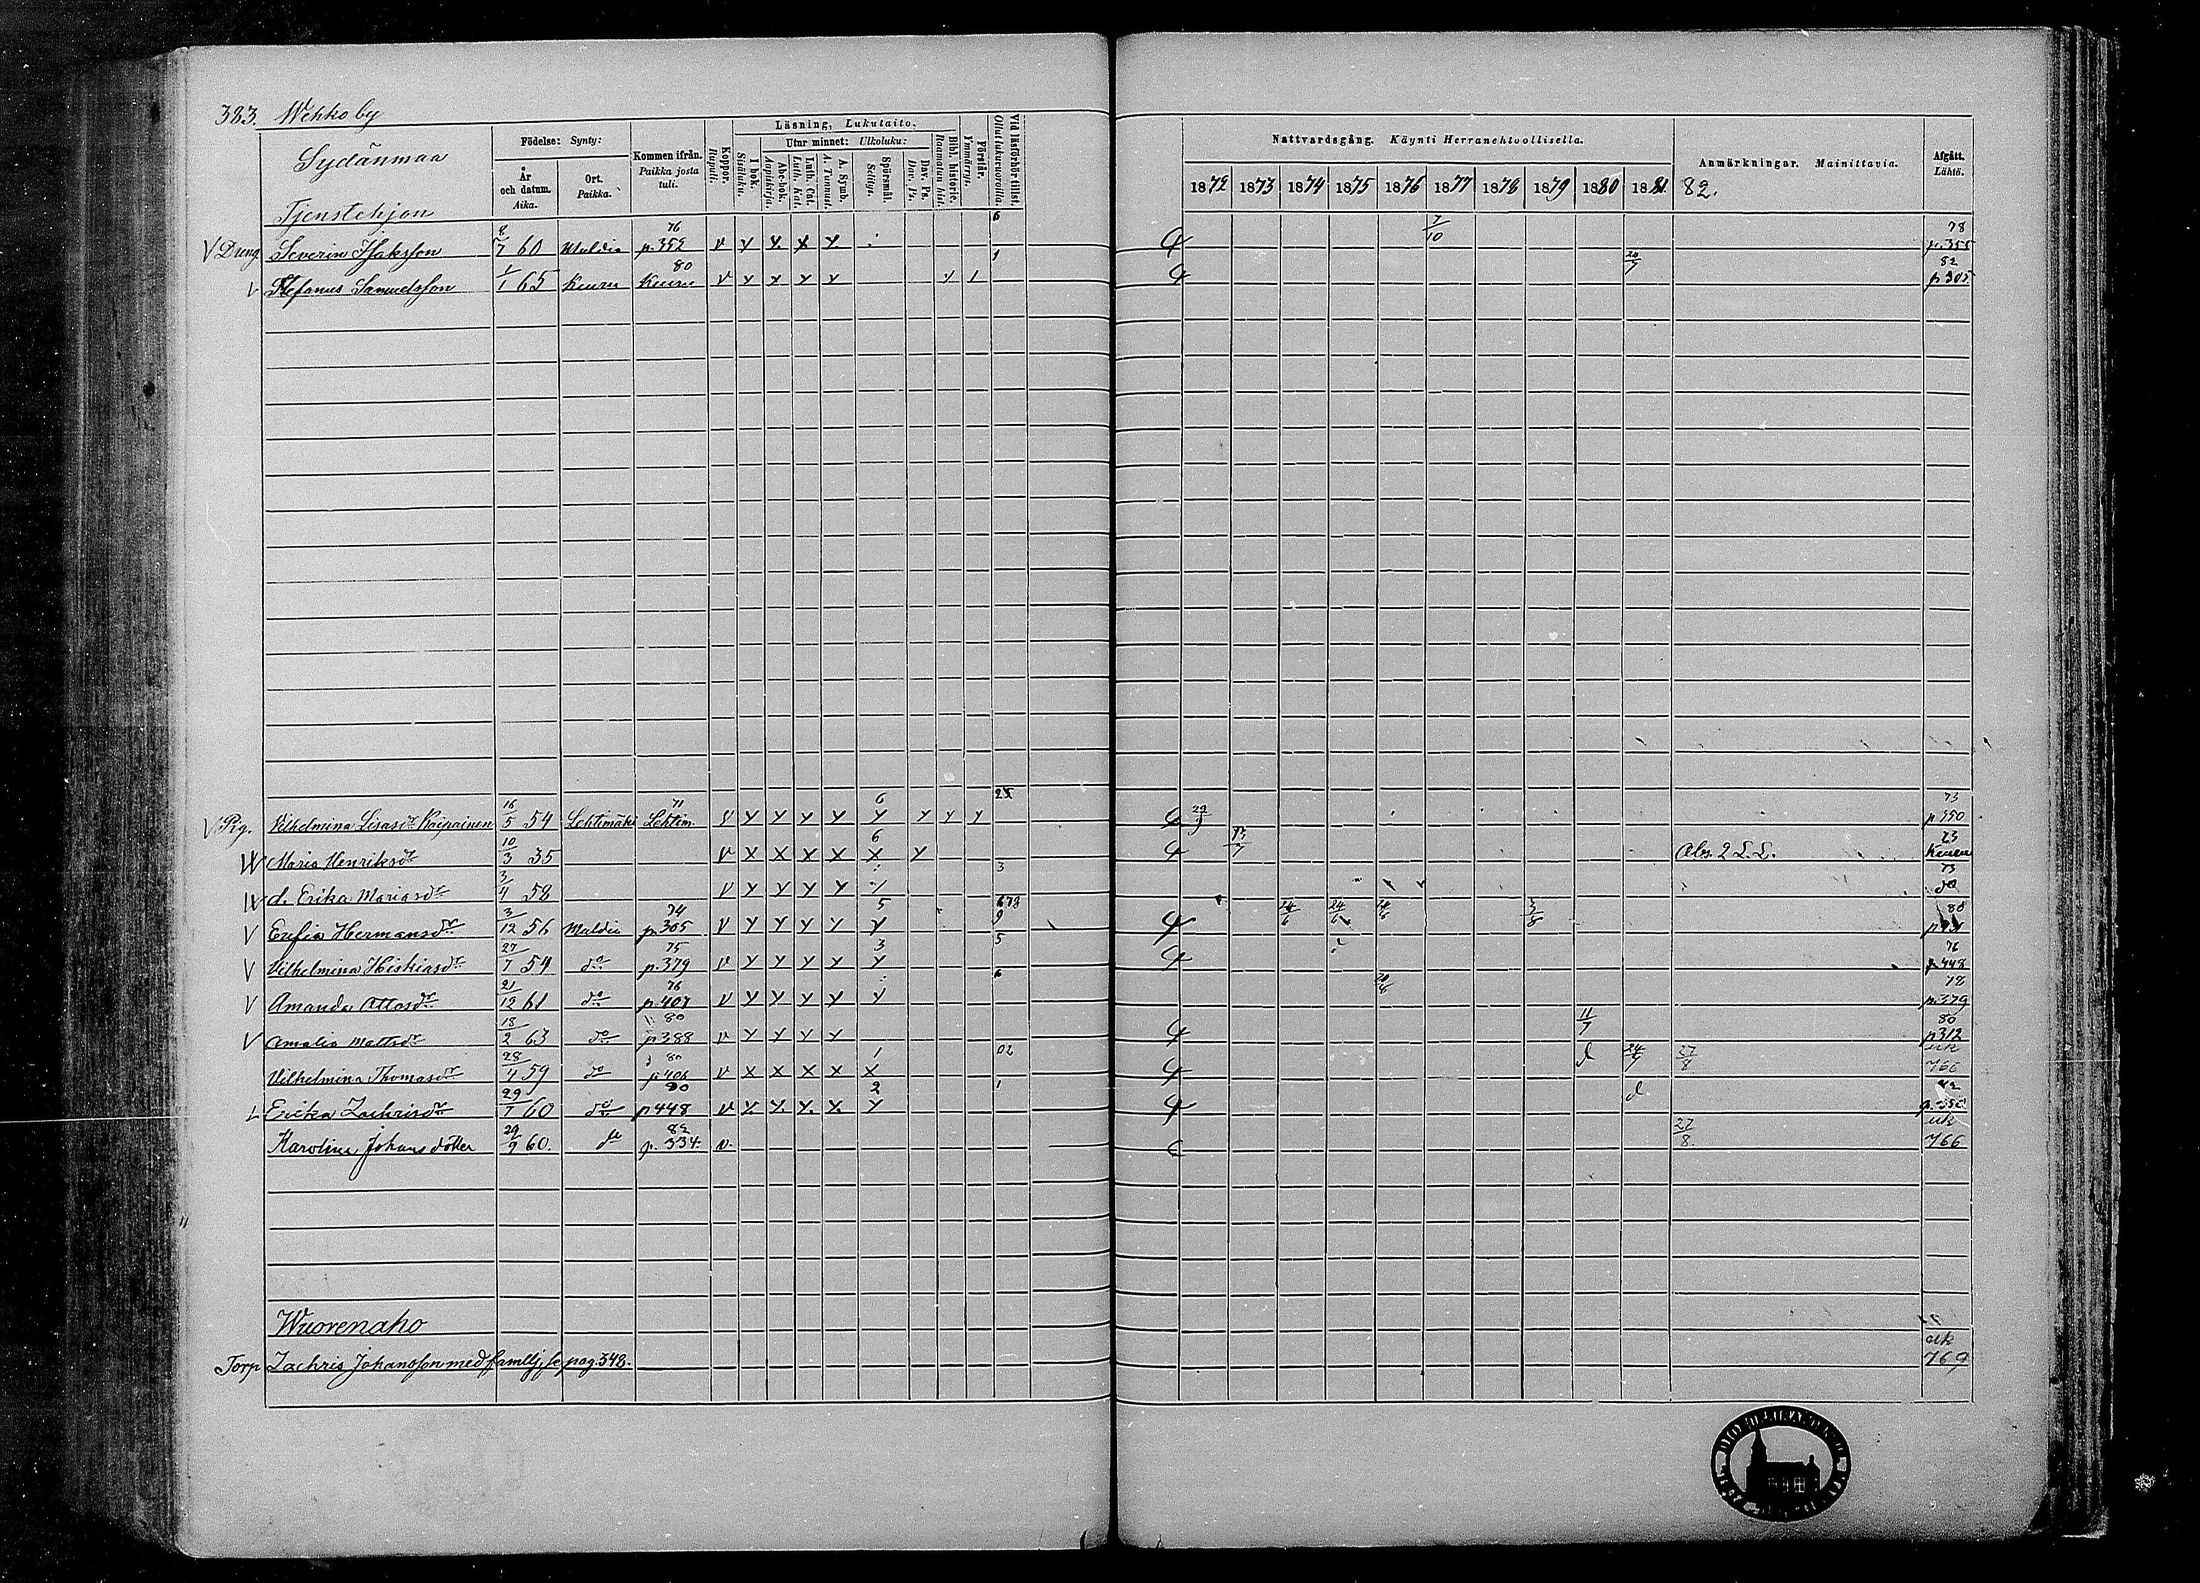 383. Wehkoby
Sydänmaa
Födelse: Synty:
År och datum. Aika.
Ort. Paikka.
Kommen ifrån. Paikka josta tuli.
Koppor. Rupuli.
Läsning, Lukutaito.
I bok. Sisäluku.
Utur minnet: Ulkoluku:
Abc-bok. Aapiskirja.
Luth. Cat. Luth. Kat.
A. Symb. A. Tunnust.
Spörsmål. Selitys.
Dav. Ps. Dav. Ps.
Bibl. historie. Raamatun hist.
Förstår. Ymmärrys.
Vid läsförhör tillst. Ollut lukuwuorolla.
Nattvardsgång. Käynti Herranehtoollisella.
1872 1873 1874 1875 1876 1877 1878 1879 1880 1881
Anmärkningar. Mainittavia.
82.
Afgått. Lähtö.
Tjenstehjon
V Dreng Severin Isaksson 8/7 60 Muldia 76 p. 352 v y y x y 6 7/10 78 p. 355
V Stefanus Samuelsson 1/1 65 Keuru 80 Keuru v y y y y y 1 1 24/7 82 p. 305
V Pig. Vilhelmina Liisasdr Kaipainen 16/5 54 Lehtimäki 71 Lehtim. y y y y 6 y y y y 73 p 350
W Maria Henriksdr 10/3 35 v x x x x 6 x y 13/7 Abs. 2 L. L. 73 Keuru
W d. Erika Mariasdr 3/4 58 v y y y y 3 73 do
V Eufia Hermansdr 3/12 56 Muldia 74 p 305 v y y y y 5 y 678 9 24/6 24/6 24/6 3/8 80
V Vilhelmina Hiskiasdr 27/7 54 do 75 p. 379 v y y y y 3 y 5 76 p 448
V Amanda Ottosdr 21/12 61 do 76 p. 407 v y y y y 6 78 p. 379
V Amalia Mattsdr 18/2 63 do 80 p 388 v y y y y 11/7 80 p 312
Vilhelmina Thomasdr 28/4 59 do 80 p 406 v x x x x 1 x 02 24/7 27/8 uk 766
L Erika Zachrisdr 29/7 60 do 80 p 448 v x x x x 2 y 1 82
Karolina Johansdotter 29/9 60. do 82 p. 334. v. 27/8. uk 766
Wuorenaho
Torp Zachris Johansson med familj, se pag. 348. uk 769